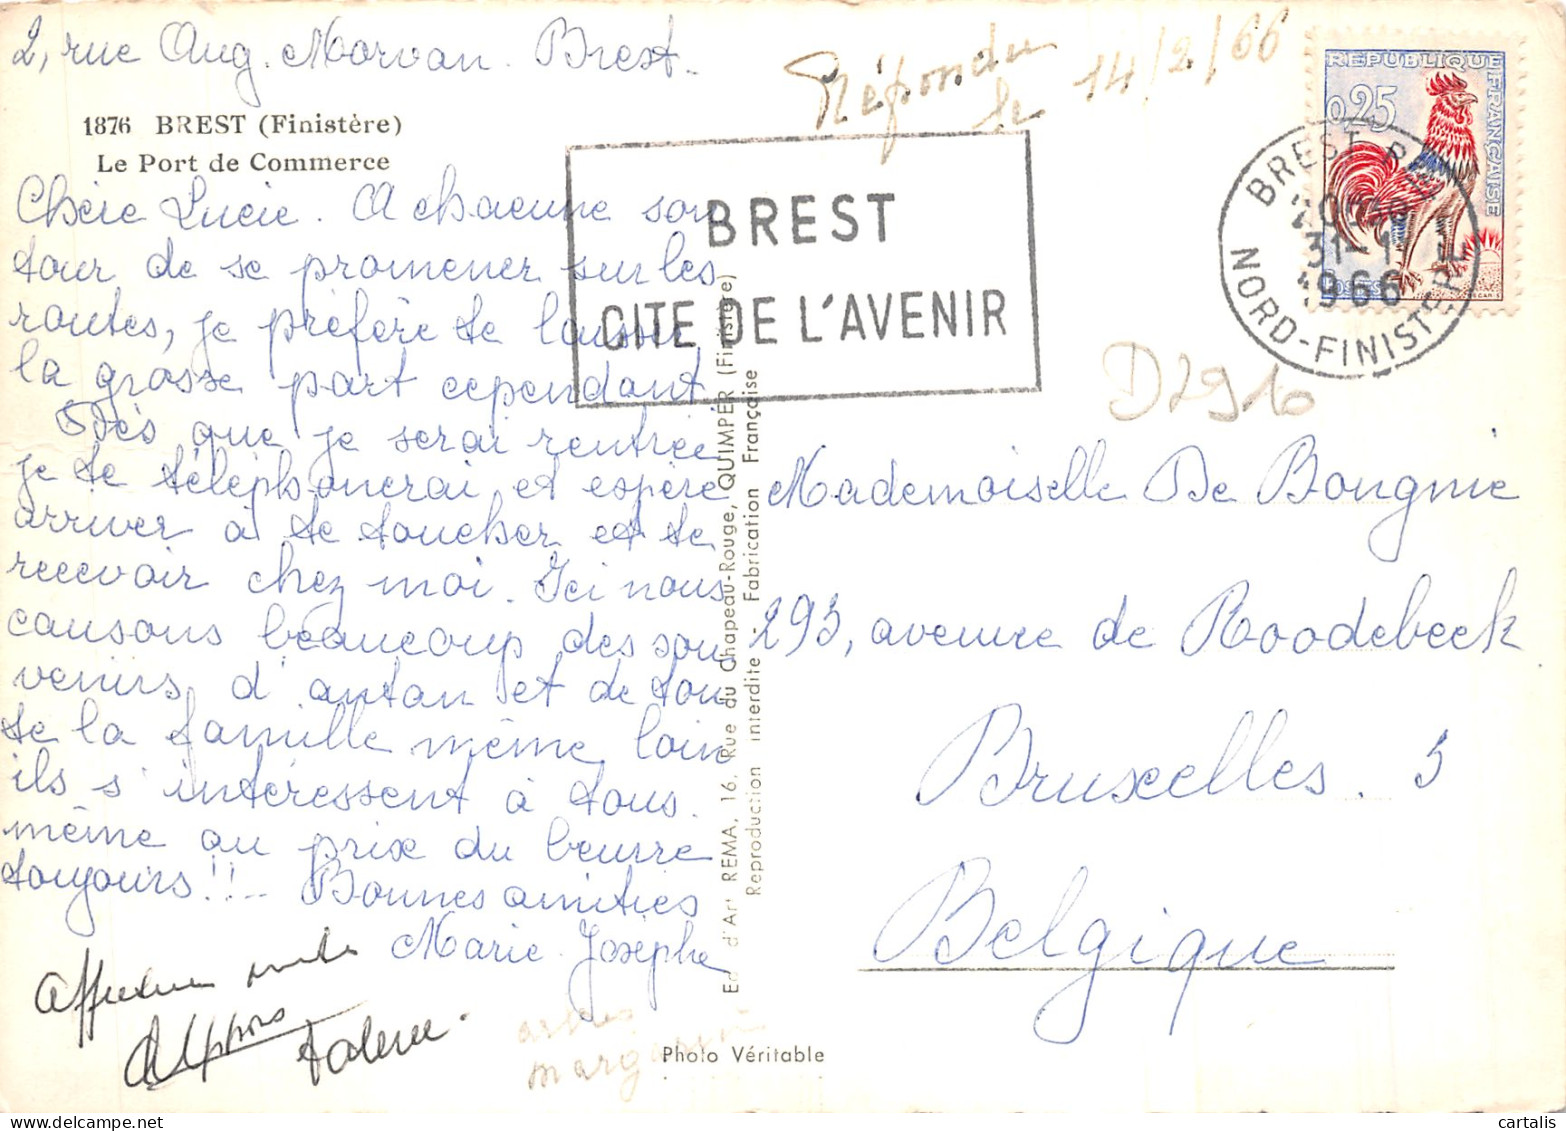 2, rue Aug. Morvan. Brest.
1876 BREST (Finistère)
Le Port de Commerce
Chère Lucie. A chacune son
tour de se promener sur les
routes, je préfère te laisser
la grosse part cependant.
Dès que je serai rentrée
je te téléphonerai et espère
arriver à te toucher et te
recevoir chez moi. Ici nous
causons beaucoup des sou
venirs d'antan et de tou
te la famille même loin
ils s'intéressent à tous.
même au prix du beurre
toujours!!_ Bonnes amitiés
Marie-Josèphe
Répondu
le 14/2/66
BREST
CITE DE L'AVENIR
REPUBLIQUE FRANÇAISE
0,25
POSTES
DECARIS
BREST
31-1
1966
NORD-FINISTERE
D2916
Mademoiselle De Bongnie
293, avenue de Roodebeek
Bruxelles. 5
Belgique
Ed. d'Art REMA, 16, Rue du Chapeau-Rouge, QUIMPER (Finistère)
Reproduction interdite - Fabrication Française
Photo Véritable
cartalis